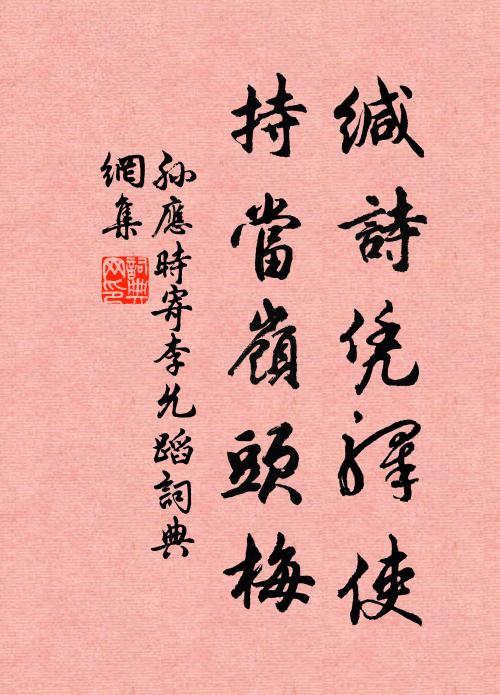 緘詩凭驛使
持當嶺頭梅
孫應時寄李允蹈詞典
網集
詞典
网印